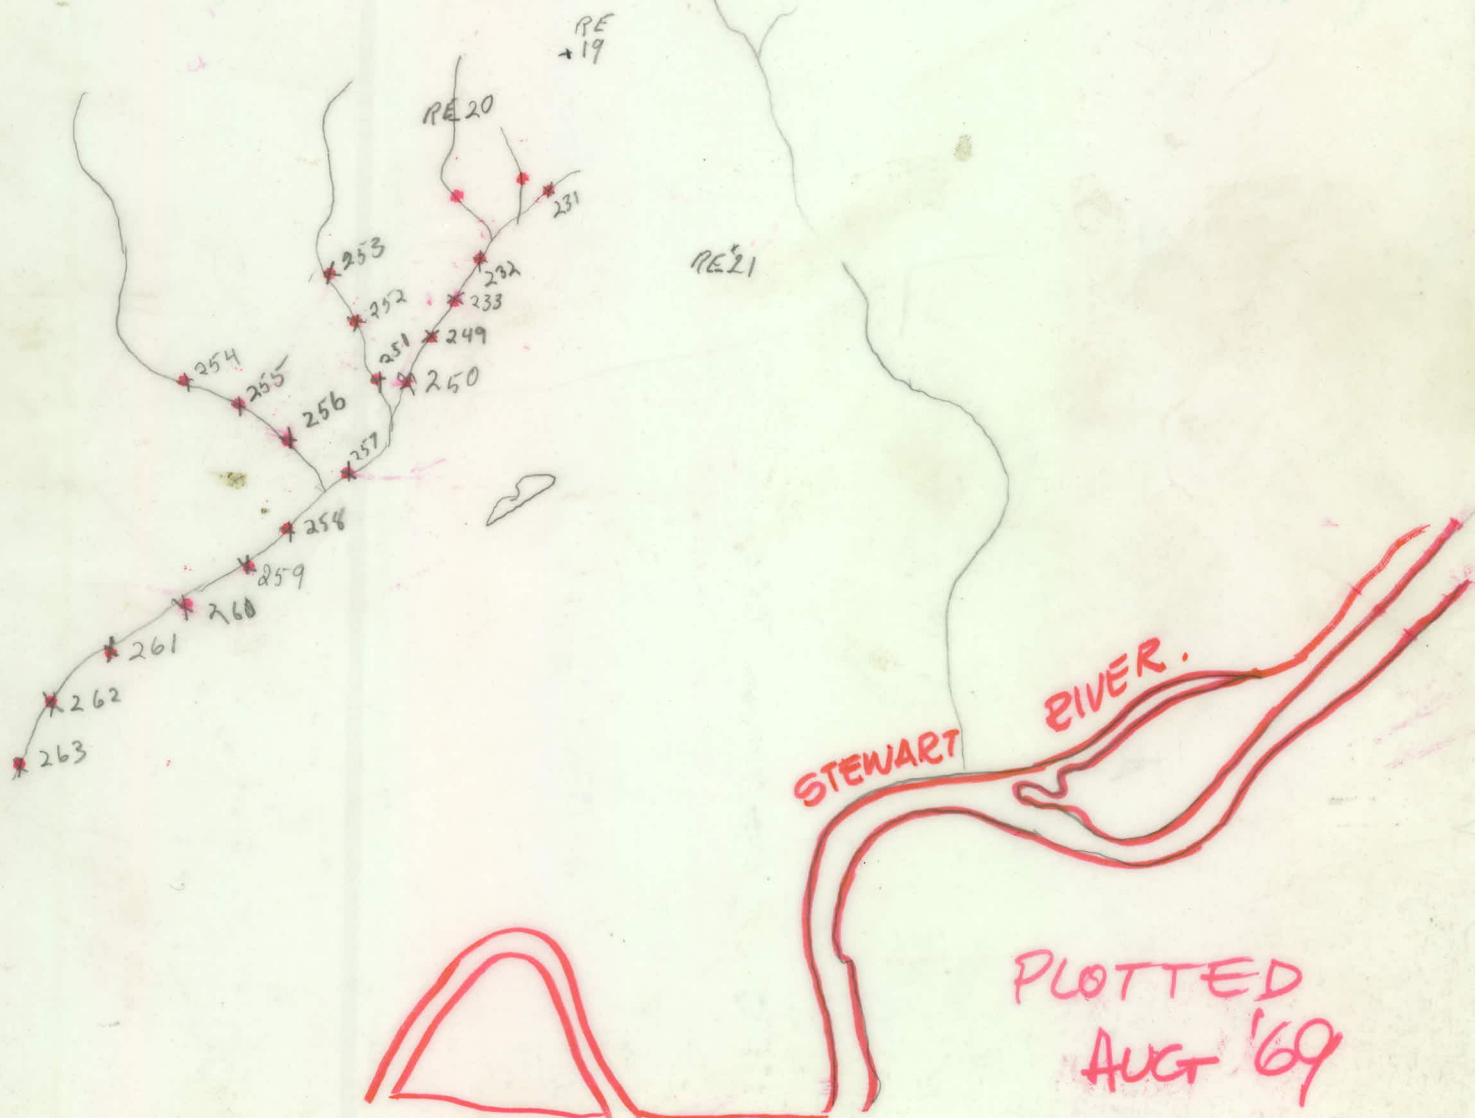 RE
19
RE 20
231
RE 21
253
232
252
233
249
251
250
254
255
256
257
258
259
260
261
262
263
STEWART RIVER.
PLOTTED
AUG '69